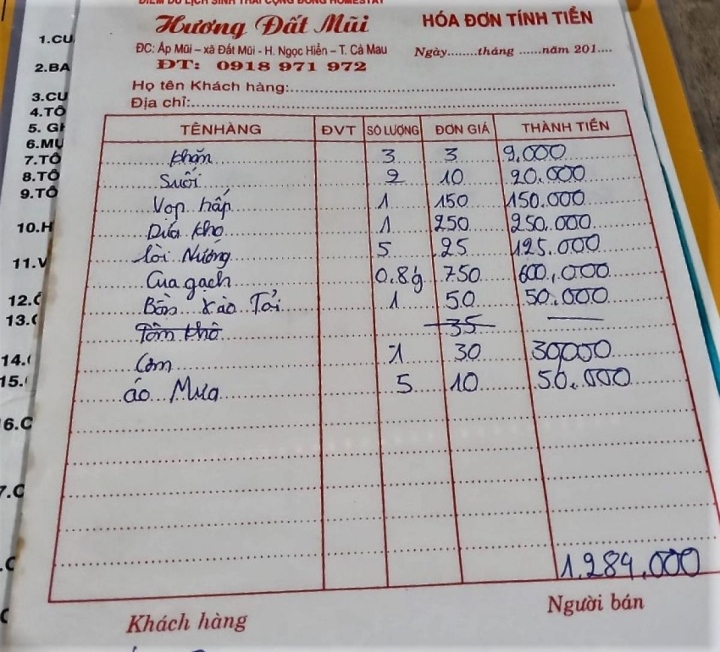 ĐIỂM DU LỊCH SINH THÁI CỘNG ĐỒNG HOMESTAY
Hương Đất Mũi
HÓA ĐƠN TÍNH TIỀN
ĐC: Ấp Mũi - xã Đất Mũi - H. Ngọc Hiển - T. Cà Mau
Ngày........tháng ......năm 201....
ĐT: 0918 971 972
Họ tên Khách hàng:
Địa chỉ:
TÊN HÀNG ĐVT SỐ LƯỢNG ĐƠN GIÁ THÀNH TIỀN
khăn 3 3 9.000
Suối 2 10 20.000
Vọp hấp 1 150 150.000
Dứa kho 1 250 250.000
lòi Nướng 5 25 125.000
Cua gạch 0.8g 750 600,000
Bồn xào Tỏi 1 50 50.000
Tôm khô 35
Cơm 1 30 30000
áo Mưa 5 10 50.000
1.284.000
Khách hàng
Người bán
1.CU
2.BA
3.CU
4.TÔ
5. GH
6.MỰ
7.TÔ
8.TÔ
9.TÔ
10.H
11.V
12.
13.
14.
15.